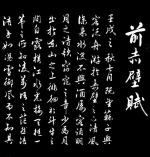 前赤壁賦
壬戌之秋七月既望蘇子與
客泛舟遊於赤壁之下清風
徐來水波不興舉酒屬客誦明
月之詩歌窈窕之章少焉月
出於東山之上徘徊於斗牛之
間白露橫江水光接天縱一
葦之所如凌萬頃之茫然浩
浩乎如馮虛御風而不知其